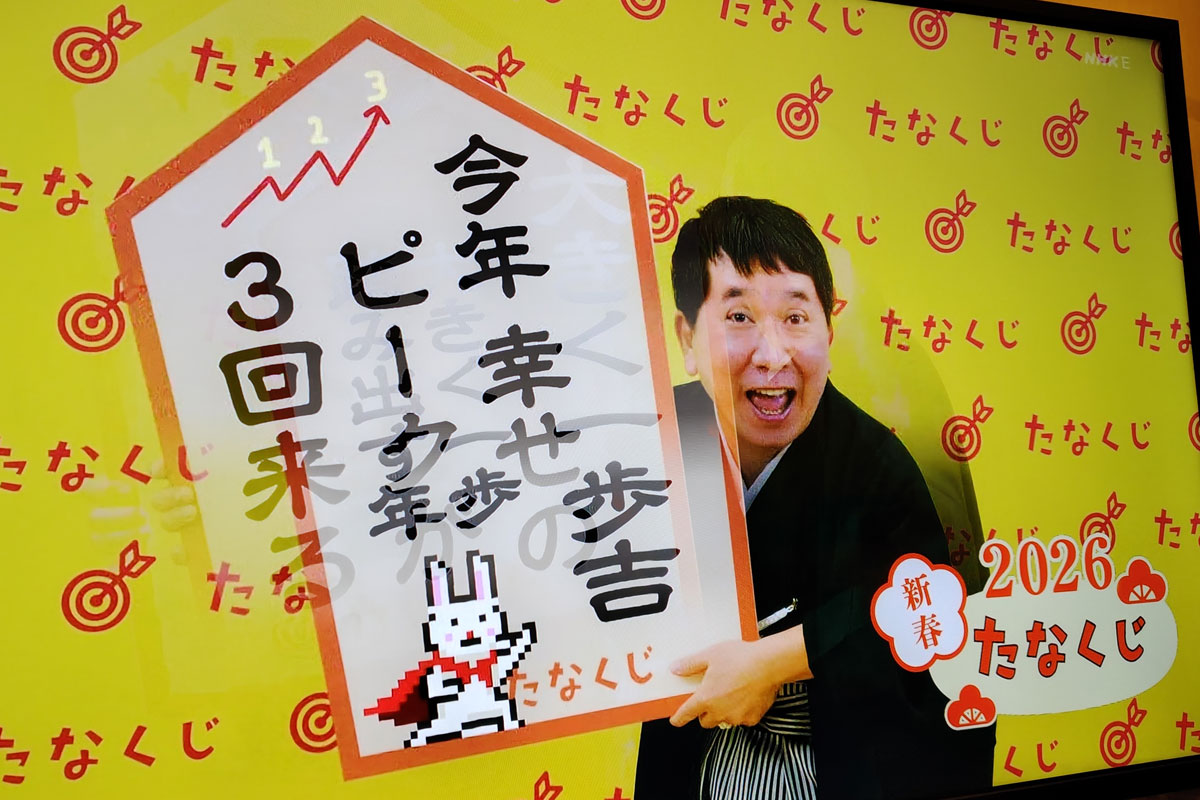 1 2 3
今年 幸せの
ピークが
3回来る
歩年
歩吉
たなくじ
NHK E
新春
2026
たなくじ
たなくじ
たなくじ
たなくじ
たなくじ
たなくじ
たなくじ
たなくじ
たなくじ